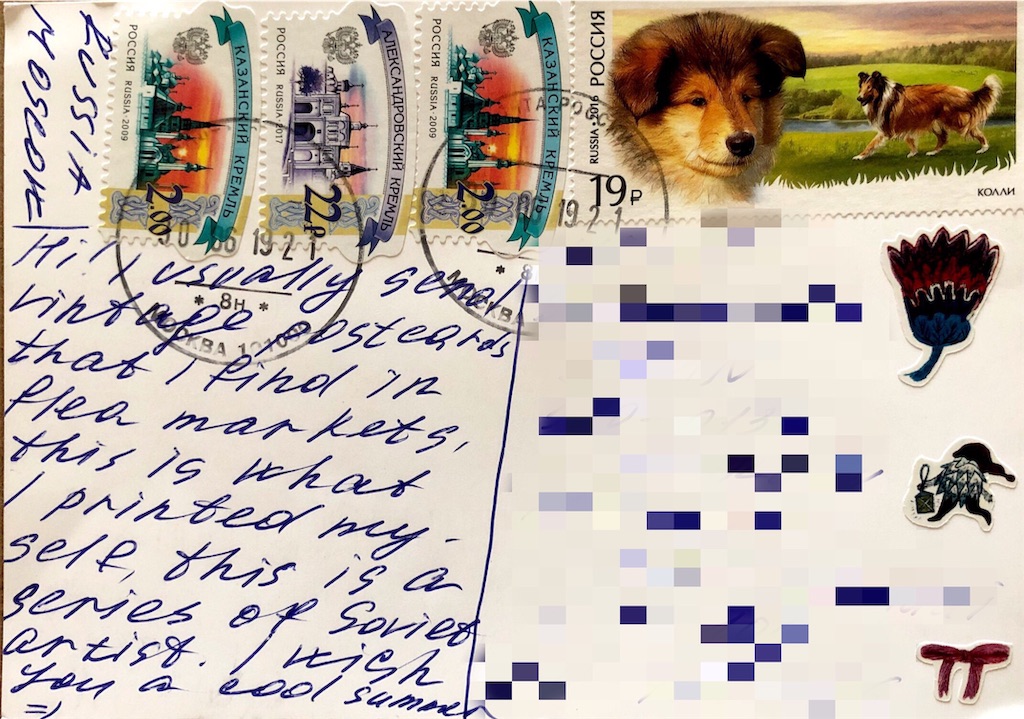 Russia
Moscow
РОССИЯ RUSSIA·2009
КАЗАНСКИЙ КРЕМЛЬ
2.00
РОССИЯ RUSSIA·2017
АЛЕКСАНДРОВСКИЙ КРЕМЛЬ
22₽
РОССИЯ RUSSIA·2009
КАЗАНСКИЙ КРЕМЛЬ
2.00
РОССИЯ
RUSSIA·2016
19₽
КОЛЛИ
19 21
* 8Н *
МОСКВА
19 21
* 8
МОСКВА
Hi! I usually send
vintage postcards
that I find in
flea markets,
this is what
I printed my-
self, this is a
series of Soviet
artist. I wish
you a cool summer
=)